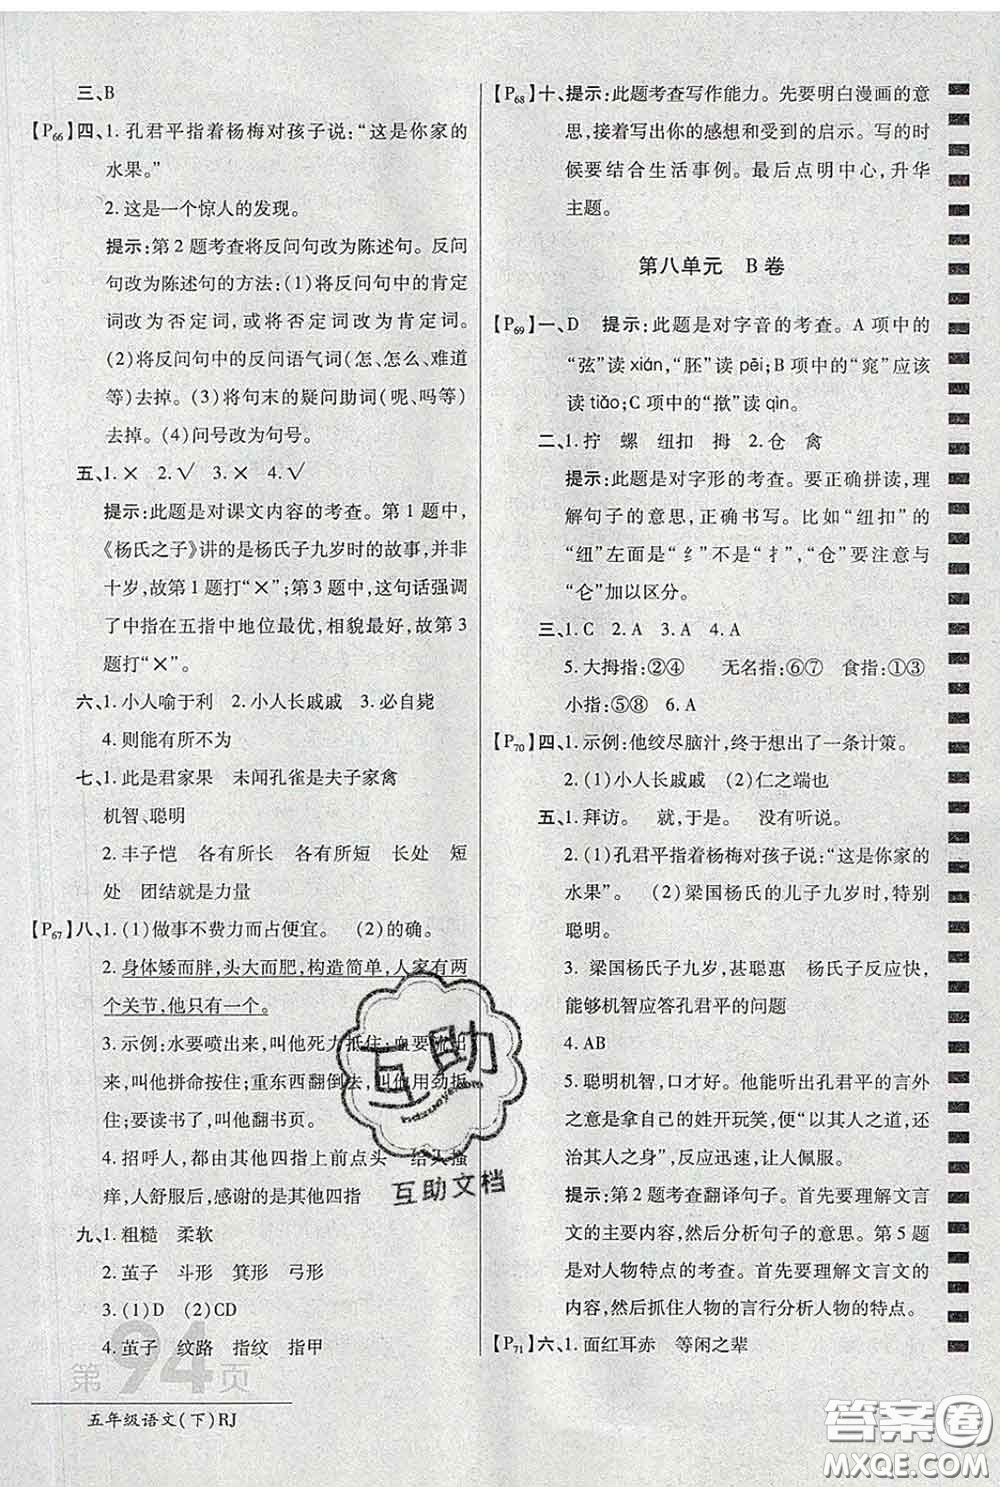 三、B
【P66】四、1. 孔君平指着杨梅对孩子说:“这是你家的
水果。”
2. 这是一个惊人的发现。
提示:第2题考查将反问句改为陈述句。反问
句改为陈述句的方法:(1)将反问句中的肯定
词改为否定词,或将否定词改为肯定词。
(2)将反问句中的反问语气词(怎、怎么、难道
等)去掉。(3)将句末的疑问助词(呢、吗等)
去掉。(4)问号改为句号。
五、1.✕ 2.√ 3.✕ 4.√
提示:此题是对课文内容的考查。第1题中,
《杨氏之子》讲的是杨氏子九岁时的故事,并非
十岁,故第1题打“✕”;第3题中,这句话强调
了中指在五指中地位最优,相貌最好,故第3
题打“✕”。
六、1. 小人喻于利 2. 小人长戚戚 3. 必自毙
4. 则能有所不为
七、1. 此是君家果 未闻孔雀是夫子家禽
机智、聪明
2. 丰子恺 各有所长 各有所短 长处 短
处 团结就是力量
【P67】八、1.(1)做事不费力而占便宜。 (2)的确。
2. 身体矮而胖,头大而肥,构造简单,人家有两
个关节,他只有一个。
3. 示例:水要喷出来,叫他死力抵住;血要流出
来,叫他拼命按住;重东西翻倒去,叫他用劲扳
住;要读书了,叫他翻书页。
4. 招呼人,都由四指上前点头 给人搔
痒,人舒服后,感谢的是其他四指
九、1. 粗糙 柔软
2. 茧子 斗形 箕形 弓形
3.(1)D (2)CD
4. 茧子 纹路 指纹 指甲
第94页
五年级语文(下)RJ
【P68】十、提示:此题考查写作能力。先要明白漫画的意
思,接着写出你的感想和受到的启示。写的时
候要结合生活事例。最后点明中心,升华
主题。
第八单元 B卷
【P69】一、D 提示:此题是对字音的考查。A项中的
“弦”读xián,“胚”读pēi;B项中的“窕”应该
读tiǎo;C项中的“揿”读qìn。
二、1. 拧 螺 纽扣 拇 2. 仓 禽
提示:此题是对字形的考查。要正确拼读,理
解句子的意思,正确书写。比如“纽扣”的
“纽”左面是“纟”不是“扌”,“仓”要注意与
“仑”加以区分。
三、1. C 2. A 3. A 4. A
5. 大拇指:②④ 无名指:⑥⑦ 食指:①③
小指:⑤⑧ 6. A
【P70】四、1. 示例:他绞尽脑汁,终于想出了一条计策。
2.(1)小人长戚戚 (2)仁之端也
五、1. 拜访。 就,于是。 没有听说。
2.(1)孔君平指着杨梅对孩子说:“这是你家的
水果”。 (2)梁国杨氏的儿子九岁时,特别
聪明。
3. 梁国杨氏子九岁,甚聪惠 杨氏子反应快,
能够机智应答孔君平的问题
4. AB
5. 聪明机智,口才好。他能听出孔君平的言外
之意是拿自己的姓开玩笑,便“以其人之道,还
治其人之身”,反应迅速,让人佩服。
提示:第2题考查翻译句子。首先要理解文言
文的主要内容,然后分析句子的意思。第5题
是对人物特点的考查。首先要理解文言文的
内容,然后抓住人物的言行分析人物的特点。
【P71】六、1. 面红耳赤 等闲之辈
互助
互助文档
答案圈
MXQE.COM